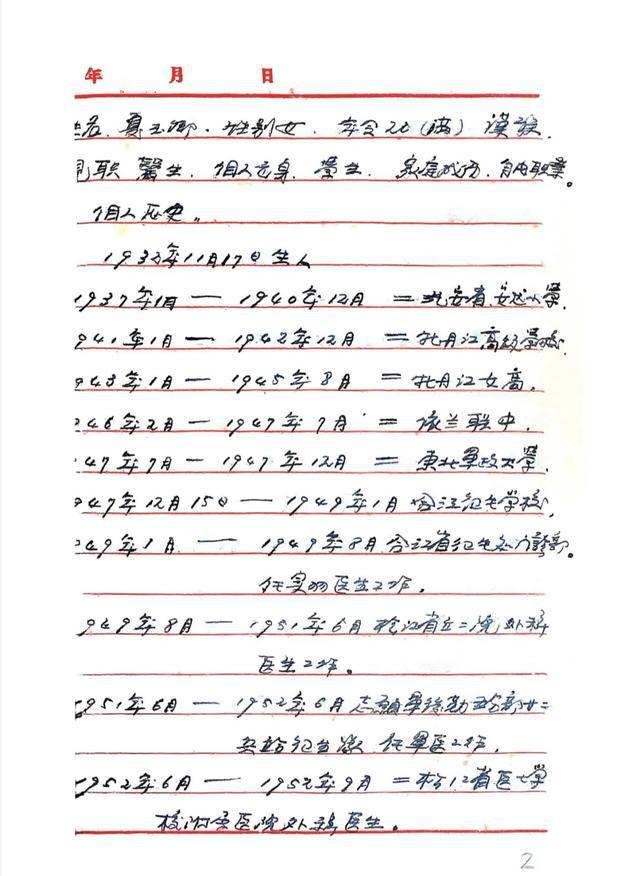 年 月 日
姓名 夏玉卿. 性别女. 年令20(满) 漢族.
职 醫生. 個人出身. 学生. 家庭成份. 自由职業。
個人历史.
1932年11月17日生人
1937年1月 — 1940年12月 = 北安省 小学.
941年1月 — 1942年12月 = 牡丹江高级学校.
943年1月 — 1945年8月 = 牡丹江女高.
946年2月 — 1947年7月 = 依兰联中.
947年7月 — 1947年12月 = 東北軍政大学.
947年12月15日 — 1949年1月 合江衛生学校.
949年1月 — 1949年8月合江省 门診部。
任实习医生工作.
949年8月 — 1951年6月 松江省立二院外科
医生工作.
1951年6月 — 1952年6月 志願軍後勤
任軍医工作.
1952年6月 — 1952年9月 = 松江省医士学
校附属医院外科医生.
2